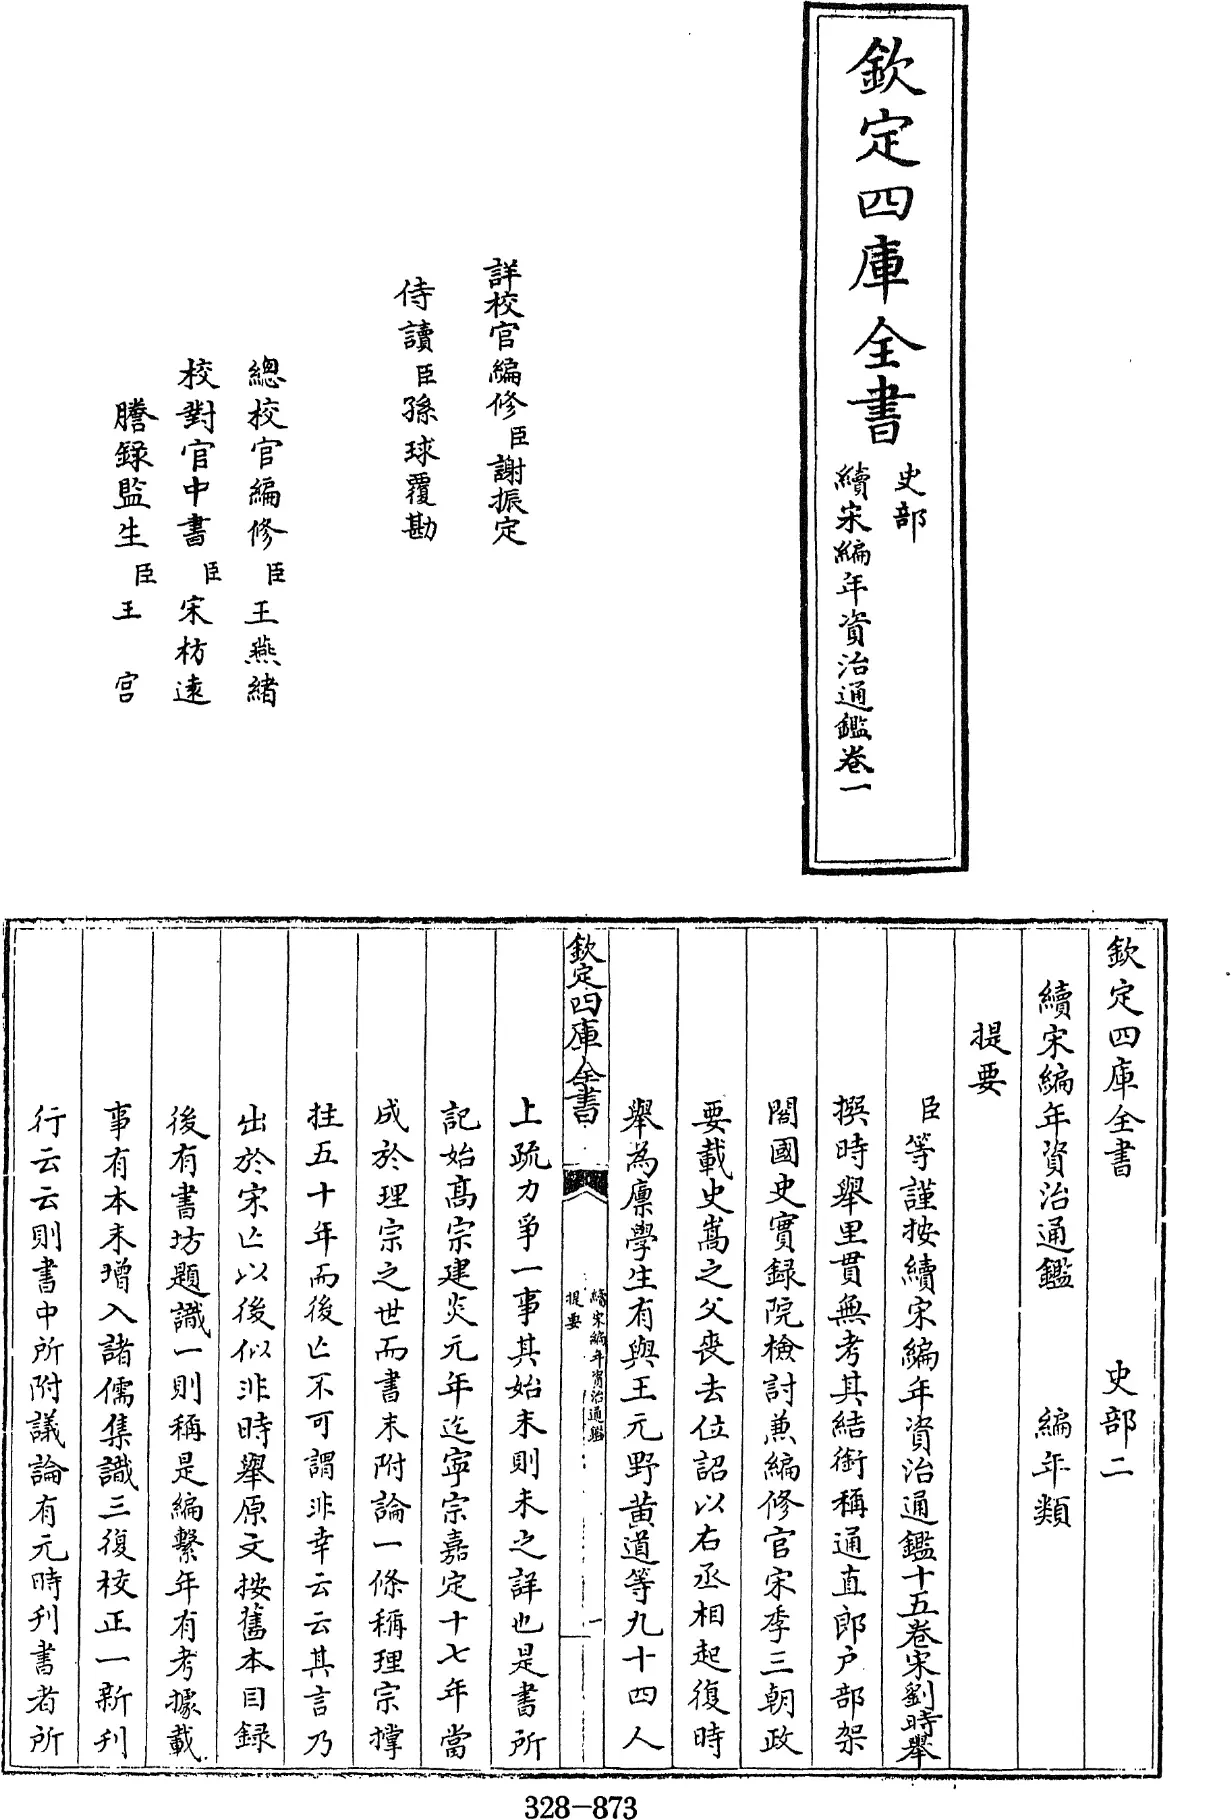 欽定四庫全書
史部
續宋編年資治通鑑卷一
詳校官編修臣謝振定
侍讀臣孫球覆勘
總校官編修臣王燕緒
校對官中書臣宋枋遠
謄録監生臣王宫
欽定四庫全書 史部二
續宋編年資治通鑑 編年類
提要
臣等謹按續宋編年資治通鑑十五卷宋劉時舉
撰時舉里貫無考其結銜稱通直郎户部架
閣國史實録院檢討兼編修官宋季三朝政
要載史嵩之父喪去位詔以右丞相起復時
舉為廪學生有與王元野黄道等九十四人
欽定四庫全書
續宋編年資治通鑑
提要
一
上疏力爭一事其始末則未之詳也是書所
記始髙宗建炎元年迄寧宗嘉定十七年當
成於理宗之世而書末附論一條稱理宗撑
拄五十年而後亡不可謂非幸云云其言乃
出於宋亡以後似非時舉原文按舊本目録
後有書坊題識一則稱是編繫年有考據載
事有本末增入諸儒集識三復校正一新刊
行云云則書中所附議論有元時刋書者所
328-873